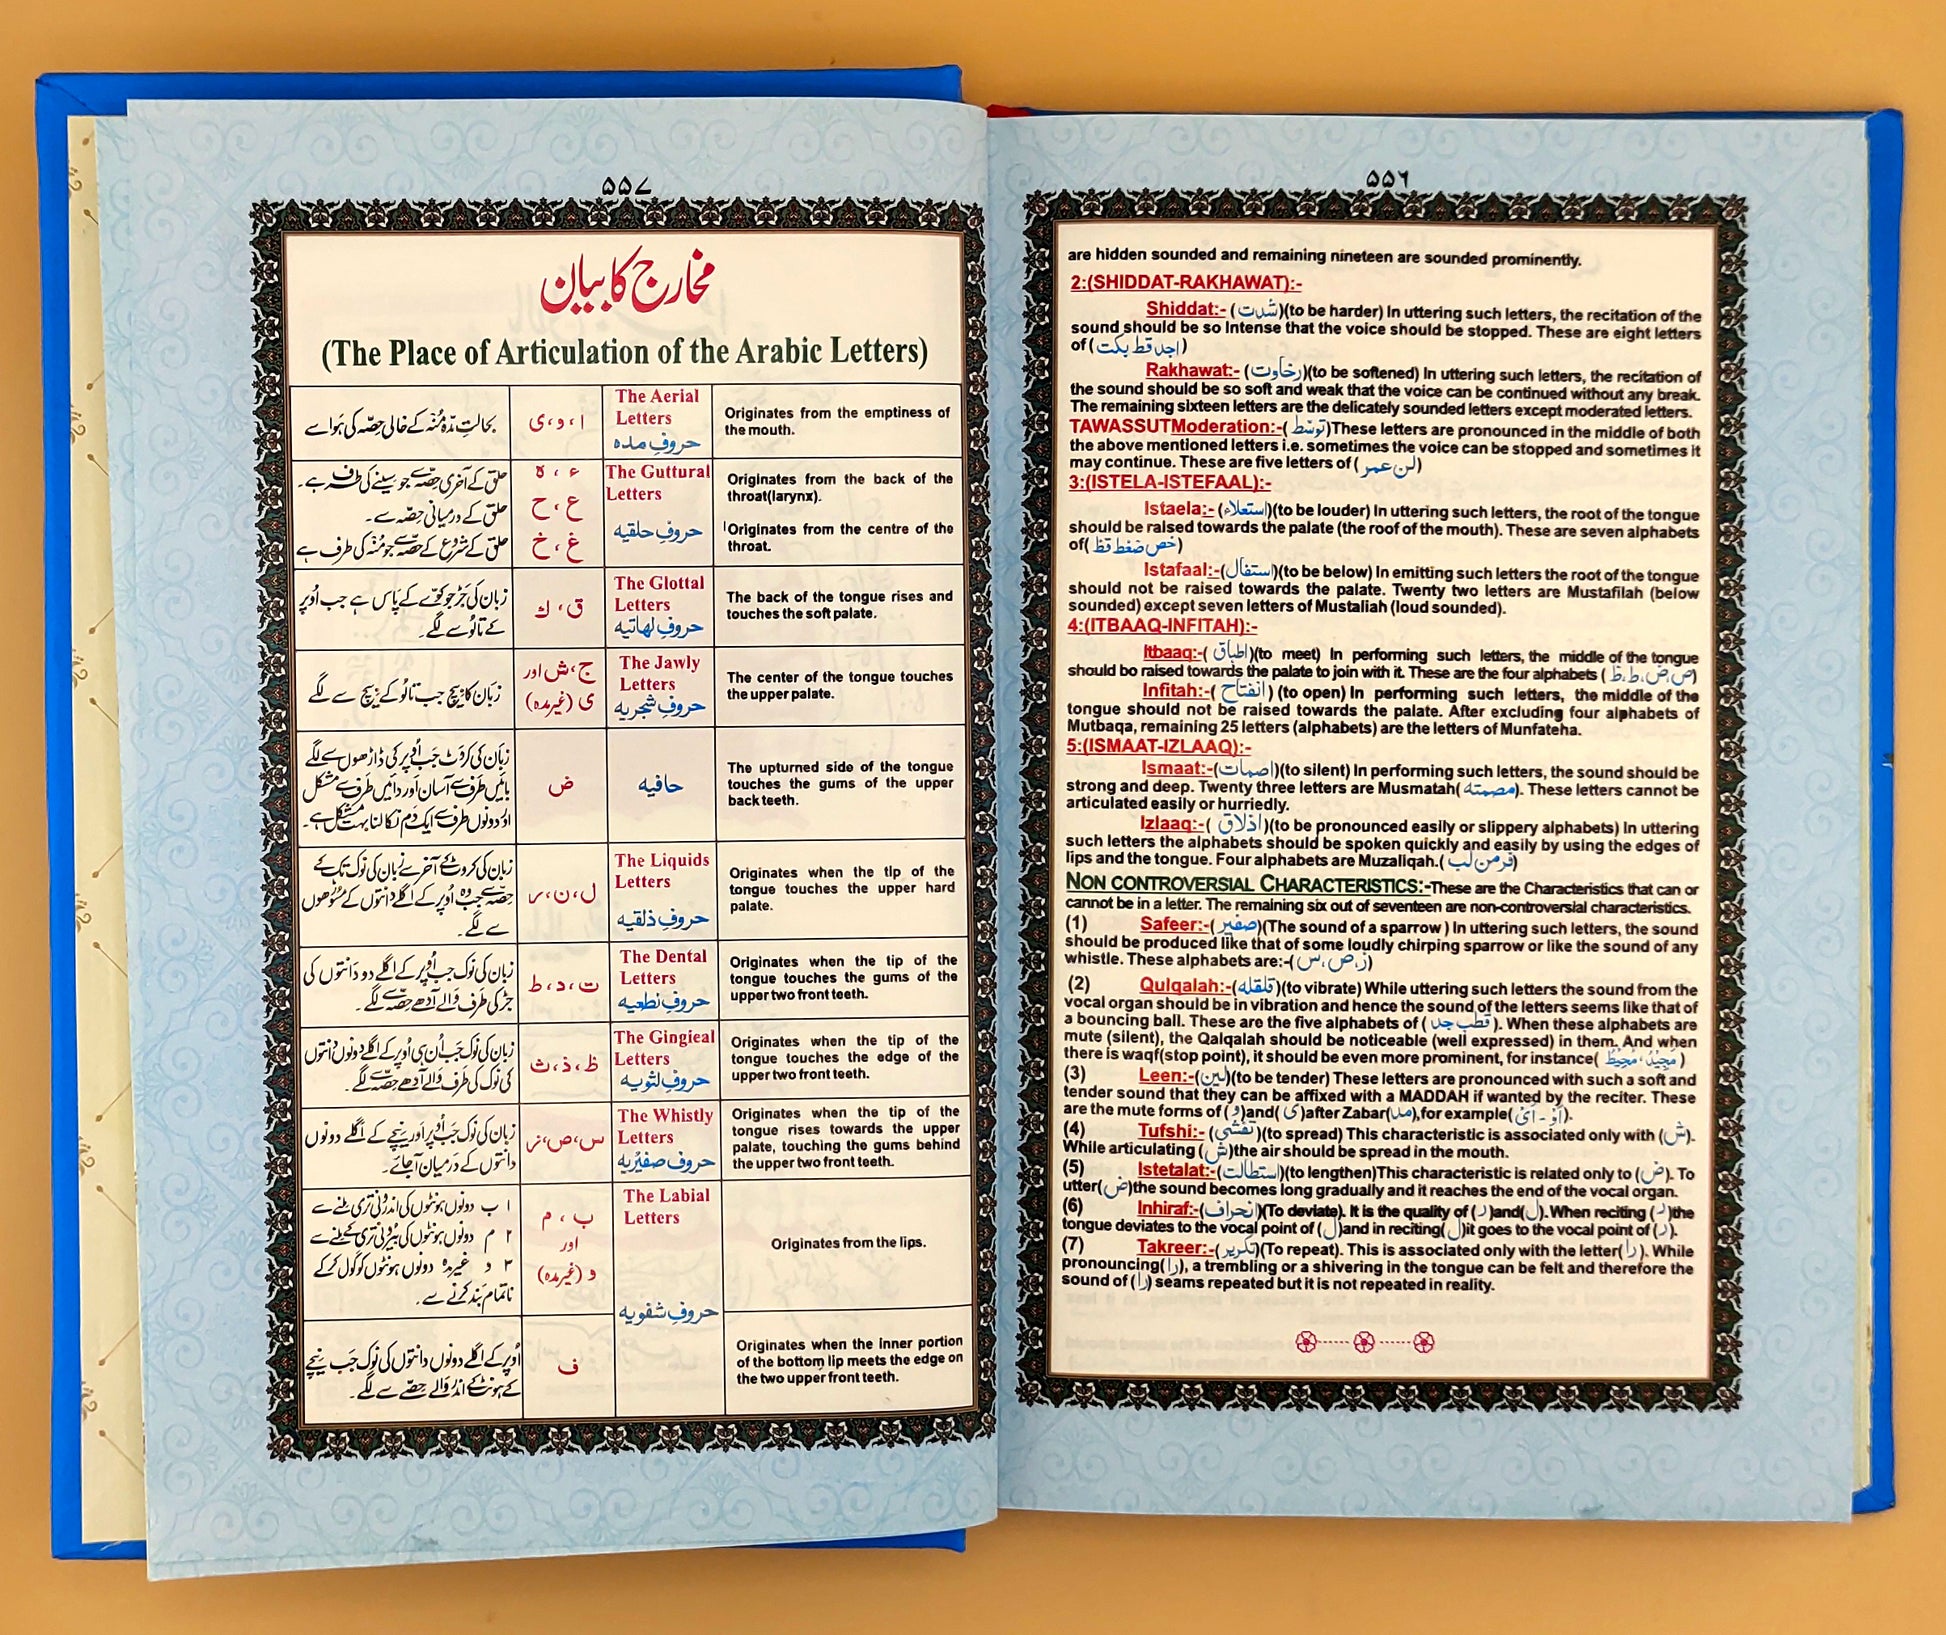 ۵۵۶
are hidden sounded and remaining nineteen are sounded prominently.
2:(SHIDDAT-RAKHAWAT):-
Shiddat:- (شدت)(to be harder) In uttering such letters, the recitation of the
sound should be so Intense that the voice should be stopped. These are eight letters
of (اجد قط بكت)
Rakhawat:- (رخاوت)(to be softened) In uttering such letters, the recitation of
the sound should be so soft and weak that the voice can be continued without any break.
The remaining sixteen letters are the delicately sounded letters except moderated letters.
TAWASSUTModeration:-(توسّط)These letters are pronounced in the middle of both
the above mentioned letters i.e. sometimes the voice can be stopped and sometimes it
may continue. These are five letters of (لن عمر)
3:(ISTELA-ISTEFAAL):-
Istaela:- (استعلاء)(to be louder) In uttering such letters, the root of the tongue
should be raised towards the palate (the roof of the mouth). These are seven alphabets
of( خص ضغط قظ)
Istafaal:-(استفال)(to be below) In emitting such letters the root of the tongue
should not be raised towards the palate. Twenty two letters are Mustafilah (below
sounded) except seven letters of Mustaliah (loud sounded).
4:(ITBAAQ-INFITAH):-
Itbaaq:-( اطباق)(to meet) In performing such letters, the middle of the tongue
should be raised towards the palate to join with it. These are the four alphabets ( ص،ض،ط،ظ)
Infitah:-( انفتاح) (to open) In performing such letters, the middle of the
tongue should not be raised towards the palate. After excluding four alphabets of
Mutbaqa, remaining 25 letters (alphabets) are the letters of Munfateha.
5:(ISMAAT-IZLAAQ):-
Ismaat:-(اصمات)(to silent) In performing such letters, the sound should be
strong and deep. Twenty three letters are Musmatah( مصمته). These letters cannot be
articulated easily or hurriedly.
Izlaaq:-( اذلاق)(to be pronounced easily or slippery alphabets) In uttering
such letters the alphabets should be spoken quickly and easily by using the edges of
lips and the tongue. Four alphabets are Muzaliqah.( فرمن لب)
NON CONTROVERSIAL CHARACTERISTICS:-These are the Characteristics that can or
cannot be in a letter. The remaining six out of seventeen are non-controversial characteristics.
(1) Safeer:-(صفير)(The sound of a sparrow ) In uttering such letters, the sound
should be produced like that of some loudly chirping sparrow or like the sound of any
whistle. These alphabets are:-(ز،ص،س)
(2) Qulqalah:-(قلقله)(to vibrate) While uttering such letters the sound from the
vocal organ should be in vibration and hence the sound of the letters seems like that of
a bouncing ball. These are the five alphabets of ( قطب جد ). When these alphabets are
mute (silent), the Qalqalah should be noticeable (well expressed) in them. And when
there is waqf(stop point), it should be even more prominent, for instance( مَجِيْدٌ، مُحِيْطٌ )
(3) Leen:-(لين)(to be tender) These letters are pronounced with such a soft and
tender sound that they can be affixed with a MADDAH if wanted by the reciter. These
are the mute forms of (و)and( ى)after Zabar(مد),for example(اَوْ - اَىْ).
(4) Tufshi:- (تفشى)(to spread) This characteristic is associated only with (ش).
While articulating (ش)the air should be spread in the mouth.
(5) Istetalat:-(استطالت)(to lengthen)This characteristic is related only to (ض). To
utter(ض)the sound becomes long gradually and it reaches the end of the vocal organ.
(6) Inhiraf:-(انحراف)(To deviate). It is the quality of (ر)and(ل). When reciting (ر)the
tongue deviates to the vocal point of (ل)and in reciting(ل)it goes to the vocal point of (ر).
(7) Takreer:-(تكرير)(To repeat). This is associated only with the letter(را). While
pronouncing(را), a trembling or a shivering in the tongue can be felt and therefore the
sound of (را) seams repeated but it is not repeated in reality.
۵۵۷
مخارج کا بیان
(The Place of Articulation of the Arabic Letters)
بحالتِ مدّہ مُنہ کے خالی حِصّہ کی ہَوا سے
ا ، و ، ی
The Aerial
Letters
حروفِ مدہ
Originates from the emptiness of
the mouth.
حلق کے آخری حِصّہ سے جو سینے کی طرف ہے۔
حلق کے درمیانی حِصّہ سے۔
حلق کے شروع کے حِصّہ سے جو مُنہ کی طرف ہے
ء ، ہ
ع ، ح
غ ، خ
The Guttural
Letters
حروفِ حلقیہ
Originates from the back of the
throat(larynx).
Originates from the centre of the
throat.
زبان کی جَڑ جو کوّے کے پاس ہے جب اُوپر
کے تالُو سے لگے۔
ق ، ك
The Glottal
Letters
حروفِ لھاتیه
The back of the tongue rises and
touches the soft palate.
زبان کا بیچ جب تالُو کے بیچ سے لگے
ج،ش اور
ی (غیرمدہ)
The Jawly
Letters
حروفِ شجریه
The center of the tongue touches
the upper palate.
زبان کی کروَٹ جب اُوپر کی ڈاڑھوں سے لگے
بائیں طرف سے آسان اور دائیں طرف سے مشکل
اور دونوں طرف سے ایک دَم نکالنا بہت مشکل ہے۔
ض
حافیه
The upturned side of the tongue
touches the gums of the upper
back teeth.
زبان کی کروٹ کے آخر سے زبان کی نوک تک کے
حِصّہ سے جب وہ اُوپر کے اگلے دانتوں کے مسُوڑھوں
سے لگے۔
ل ، ن ، ر
The Liquids
Letters
حروفِ ذلقیه
Originates when the tip of the
tongue touches the upper hard
palate.
زبان کی نوک جب اُوپر کے اگلے دو دانتوں کی
جڑ کی طرف والے آدھے حِصّے سے لگے۔
ت ، د ، ط
The Dental
Letters
حروفِ نطعیه
Originates when the tip of the
tongue touches the gums of the
upper two front teeth.
زبان کی نوک جب اُن ہی اُوپر کے اگلے دونوں دانتوں
کی نوک کی طرف والے آدھے حِصّے سے لگے۔
ظ ، ذ ، ث
The Gingieal
Letters
حروفِ لثویه
Originates when the tip of the
tongue touches the edge of the
upper two front teeth.
زبان کی نوک جب اُوپر اور نیچے کے اگلے دونوں
دانتوں کے درمیان آجائے۔
س،ص،ز
The Whistly
Letters
حروف صفیریه
Originates when the tip of the
tongue rises towards the upper
palate, touching the gums behind
the upper two front teeth.
۱ ب دونوں ہونٹوں کی اندرونی تری ملنے سے
۲ م دونوں ہونٹوں کی بیرونی تری کے ملنے سے
۳ و غیرمدہ دونوں ہونٹوں کو گول کرکے
ناتمام بَند کرنے سے۔
ب ، م
اور
و (غیرمدہ)
The Labial
Letters
حروفِ شفویه
Originates from the lips.
اُوپر کے اگلے دونوں دانتوں کی نوک جَب نیچے
کے ہونٹ کے اندر والے حِصّے سے لگے۔
ف
Originates when the inner portion
of the bottom lip meets the edge on
the two upper front teeth.